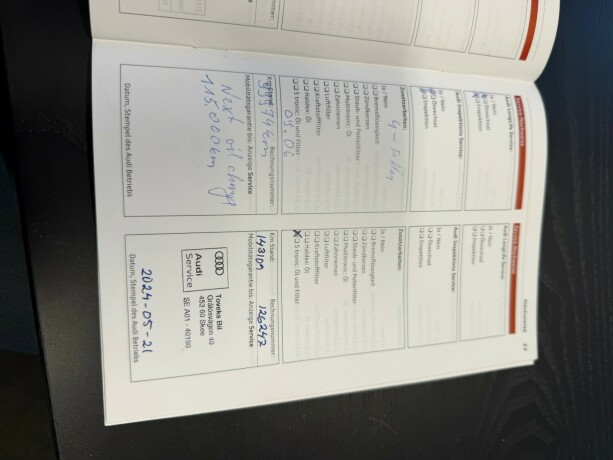 Service-Nachweise
Audi Longlife Service:
Ja / Nein
Ölwechsel
Inspektion
Audi Inspektions Service:
Ja / Nein
Ölwechsel
Inspektion
Zusatzarbeiten:
Ja / Nein
Bremsflüssigkeit
Zündkerzen
Staub- und Pollenfilter
Multitronic: Öl
Zahnriemen
Luftfilter
Kraftstofffilter
Haldex: Öl
S tronic: Öl und Filter
Km Stand:
Rechnungsnummer:
Mobilitätsgarantie bis: Anzeige Service
Next oil change
115.000km
Datum, Stempel des Audi Betriebs
Nachweise
Service-Nachweise
Audi Longlife Service:
Ja / Nein
Ölwechsel
Inspektion
Audi Inspektions Service:
Ja / Nein
Ölwechsel
Inspektion
Zusatzarbeiten:
Ja / Nein
Bremsflüssigkeit
Zündkerzen
Staub- und Pollenfilter
Multitronic: Öl
Zahnriemen
Luftfilter
Kraftstofffilter
Haldex: Öl
S tronic: Öl und Filter
Km Stand:
Rechnungsnummer:
143109
126247
Mobilitätsgarantie bis: Anzeige Service
Audi
Service
Toreks Bil
452 80 Skee
2024-05-21
Datum, Stempel des Audi Betriebs